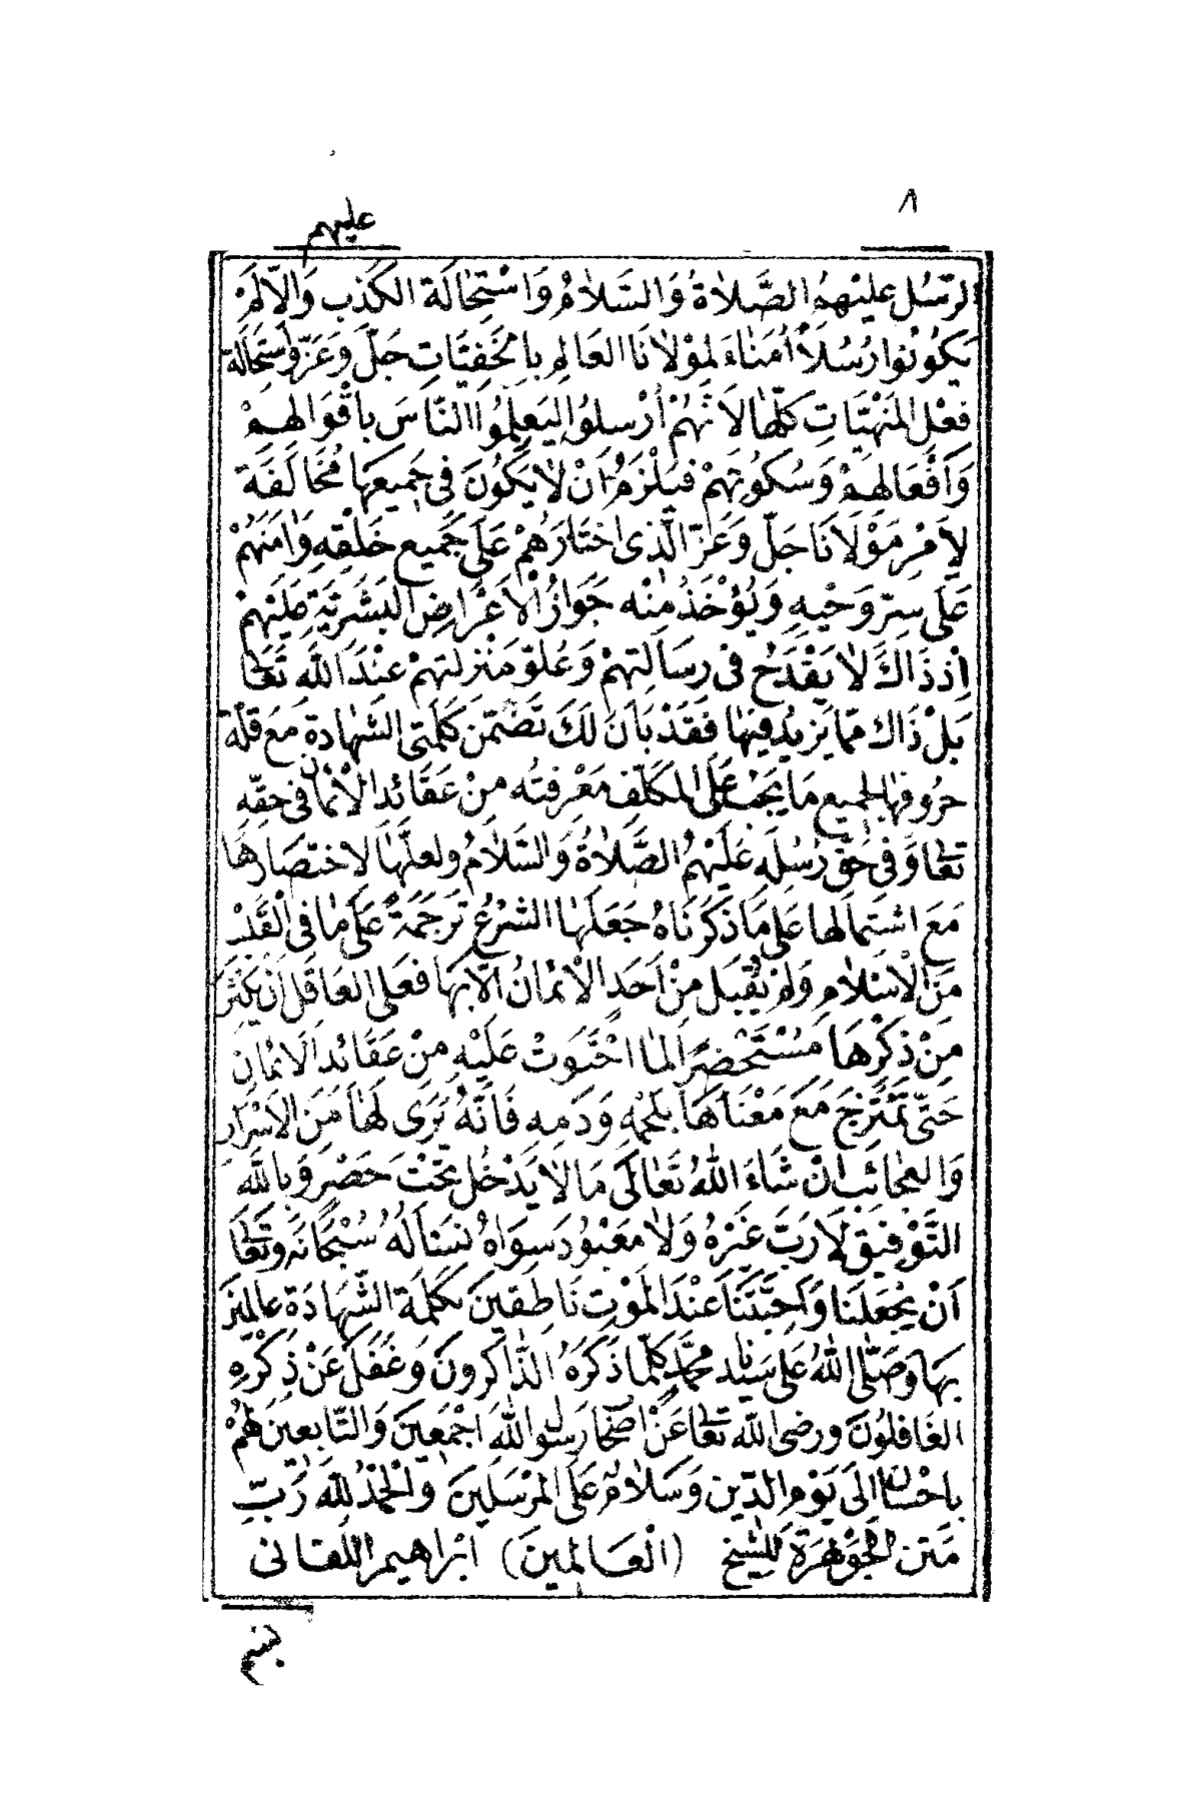 ٨
عليهم
الرُّسُل عليْهِمُ الصَّلاةُ وَالسَّلامُ وَاسْتِحَالَة الكَذِب وَاِلّا لَمْ
يَكُونُوا رُسُلاً اُمَنَاءَ لِمَوْلانَا العَالِمِ بِالْخَفِيَّاتِ جَلَّ وَعَزَّ وَاسْتِحَالَة
فِعْلِ المَنْهِيَّاتِ كلِّهَا لاَنَّهُمْ اُرْسِلوُا لِيَعلِمُوا النَّاسَ بِاَقْوَالِهِمْ
وَاَفْعَالِهِمْ وَسُكُوتِهِمْ فَيَلْزَمُ اَنْ لا يَكُونَ فى جَمِيعِهَا مُخَالَفَة
لاَمْرِ مَوْلاَنَا جَلَّ وَعَزَّ الَّذى اخْتَارَهُمْ عَلَى جَمِيعِ خَلْقِهِ وَاَمِنَهُمْ
عَلَى سِرِّ وَحْيِهِ وَيُؤْخَذُ مِنْه جَوَازُ الْاَعْرَاضِ البَشَرِيَّةِ عَلَيْهِمْ
اِذ ذَاكَ لا يَقْدَحُ فى رِسَالَتِهِمْ وَعُلوِّ مَنْزِلَتِهِمْ عِنْدَ اللهِ تَعَالَى
بَلْ ذَاكَ مِمَّا يَزِيدُ فِيهَا فَقَدْ بَانَ لَكَ تَضَمُّن كَلِمَتَى الشَّهَادَةِ مَعَ قِلَّة
حُرُوفِهَا لِجَمِيعِ مَا يَجِبُ عَلَى المكَلَّفِ مَعْرِفَتُه مِنْ عَقَائِدِ الْاِيمَانِ فى حقِّهِ
تَعَالَى وَفى حَقِّ رُسُلِهِ عَلَيْهِمُ الصَّلاةُ وَالسَّلامُ ولعلَّهَا لاختِصَارِهَا
مَعَ اشتِمالِهَا عَلَى مَا ذَكَرْنَاهُ جَعَلَهَا الشَّرْعُ تَرجَمَةً عَلَى مَا فى القَلْبِ
مِنَ الْاِسْلامِ وَلَمْ يَقْبَل مِنْ اَحَدٍ الْاِيمَانُ اِلّا بِهَا فَعَلَى العَاقلِ اَن يُكْثِرَ
مِنْ ذِكْرِهَا مُسْتَحْضِرًا لِمَا احْتَوَتْ عَلَيْهِ مِنْ عَقَائِدِ الاِيمَانِ
حَتَّى تَمْتَزِجَ مَعَ مَعْنَاهَا بِلَحْمِهِ وَدَمِهِ فَاِنَّهُ يَرَى لَهَا مِنَ الاَسْرَارِ
وَالعَجَائبِ اِنْ شَاءَ اللهُ تَعَالَى مَا لا يَدْخُلُ تَحْتَ حَصْرٍ وَبِاللهِ
التَّوْفِيق لاَ رَبَّ غَيْرُهُ وَلا مَعْبُودَ سِوَاهُ نَسْاَلُهُ سُبْحَانَهُ وَتَعَالَى
اَنْ يَجْعَلَنَا وَاَحِبَّتَنَا عِنْدَ المَوْتِ نَاطِقِينَ بِكَلِمَةِ الشَّهَادَة عالِمِينَ
بِهَا وَصَلَّى اللهُ عَلَى سَيِّدِنَا مُحَمَّدٍ كُلَّمَا ذَكَرَهُ الذَّاكِرُونَ وَغَفَلَ عَنْ ذِكْرِهِ
الغَافِلُونَ ورضى الله تعالى عَنْ اصْحَاب رَسُولِ اللهِ اَجْمَعِينَ وَالتَّابِعِينَ لَهُمْ
بِاحْسَان اِلَى يَوْمِ الدِّينِ وَسَلامٌ عَلَى المُرْسَلِينَ وَالْحَمْدُ لِلّهِ رَبِّ
مَتن الجَوْهَرَةِ لِلشَّيْخِ (الْعَالمِينَ) اِبْرَاهِيم اللقانى
بسم